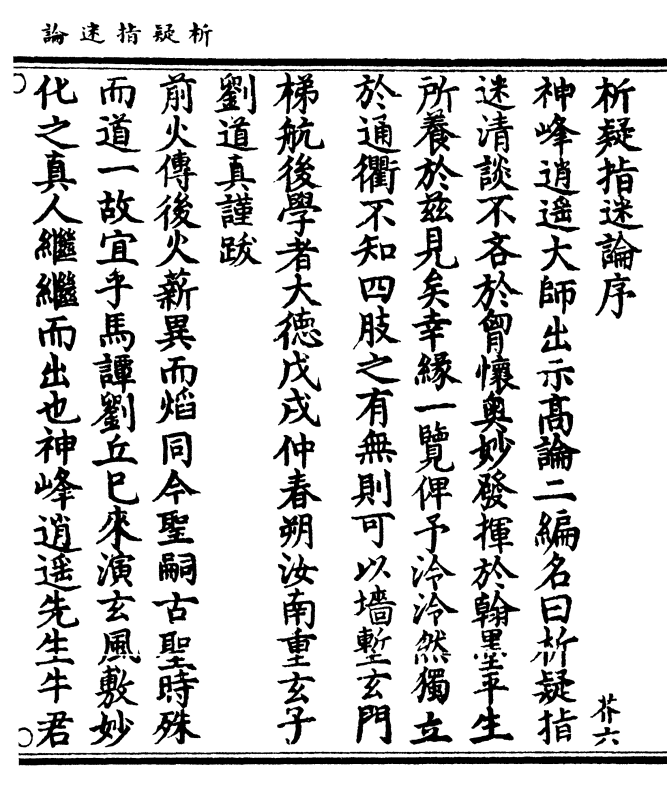 析疑指迷論
析疑指迷論序
芥六
神峰逍遥大師出示髙論二編名曰析疑指
迷清談不吝於胷懷奥妙發揮於翰墨平生
所養於兹見矣幸緣一覽俾予泠泠然獨立
於通衢不知四肢之有無則可以墻塹玄門
梯航後學者大德戊戌仲春朔汝南重玄子
劉道真謹跋
前火傳後火薪異而焰同今聖嗣古聖時殊
而道一故宜乎馬譚劉丘已來演玄風敷妙
化之真人繼繼而出也神峰逍遥先生牛君